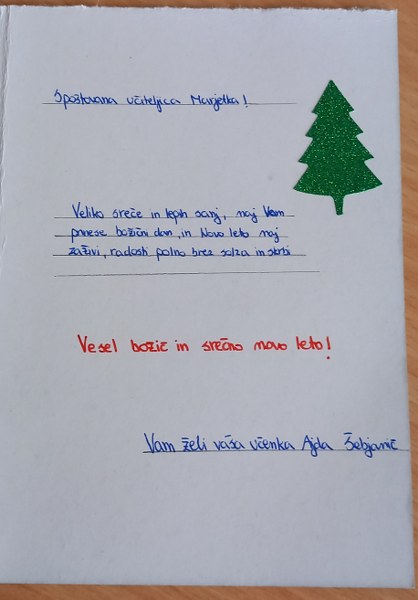 Spoštovana učiteljica Marjetka!
Veliko sreče in lepih sanj, naj Vam
prinese božični dan, in Novo leto naj
zaživi, radosti polno brez solza in skrbi
Vesel božič in srečno novo leto!
Vam želi vaša učenka Ajda Šebjanič